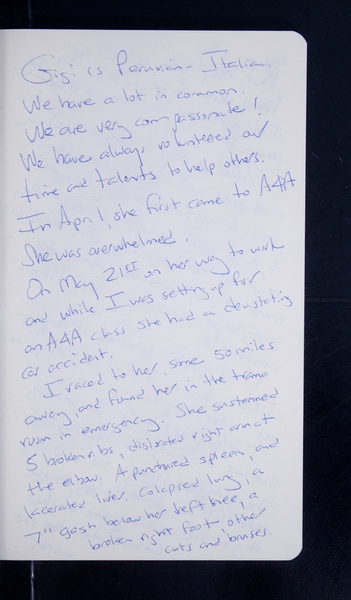 Gigi is Peruvian-Italian.
We have a lot in common.
We are very compassionate!
We have always volunteered our
time and talents to help others.
In April, she first came to A4A
She was overwhelmed.
On May 21st on her way to work
and while I was setting up for
an A4A class she had a devistating
car accident.
I raced to her, some 50 miles
away, and found her in the trama
room in emergency. She sustanned
5 broken ribs, dislocated right arm at
the elbow. A punctured spleen, and
lacerated liver. Colapsed lung, a
7" gash below her left knee, a
broken right foot other
cuts and bruses.